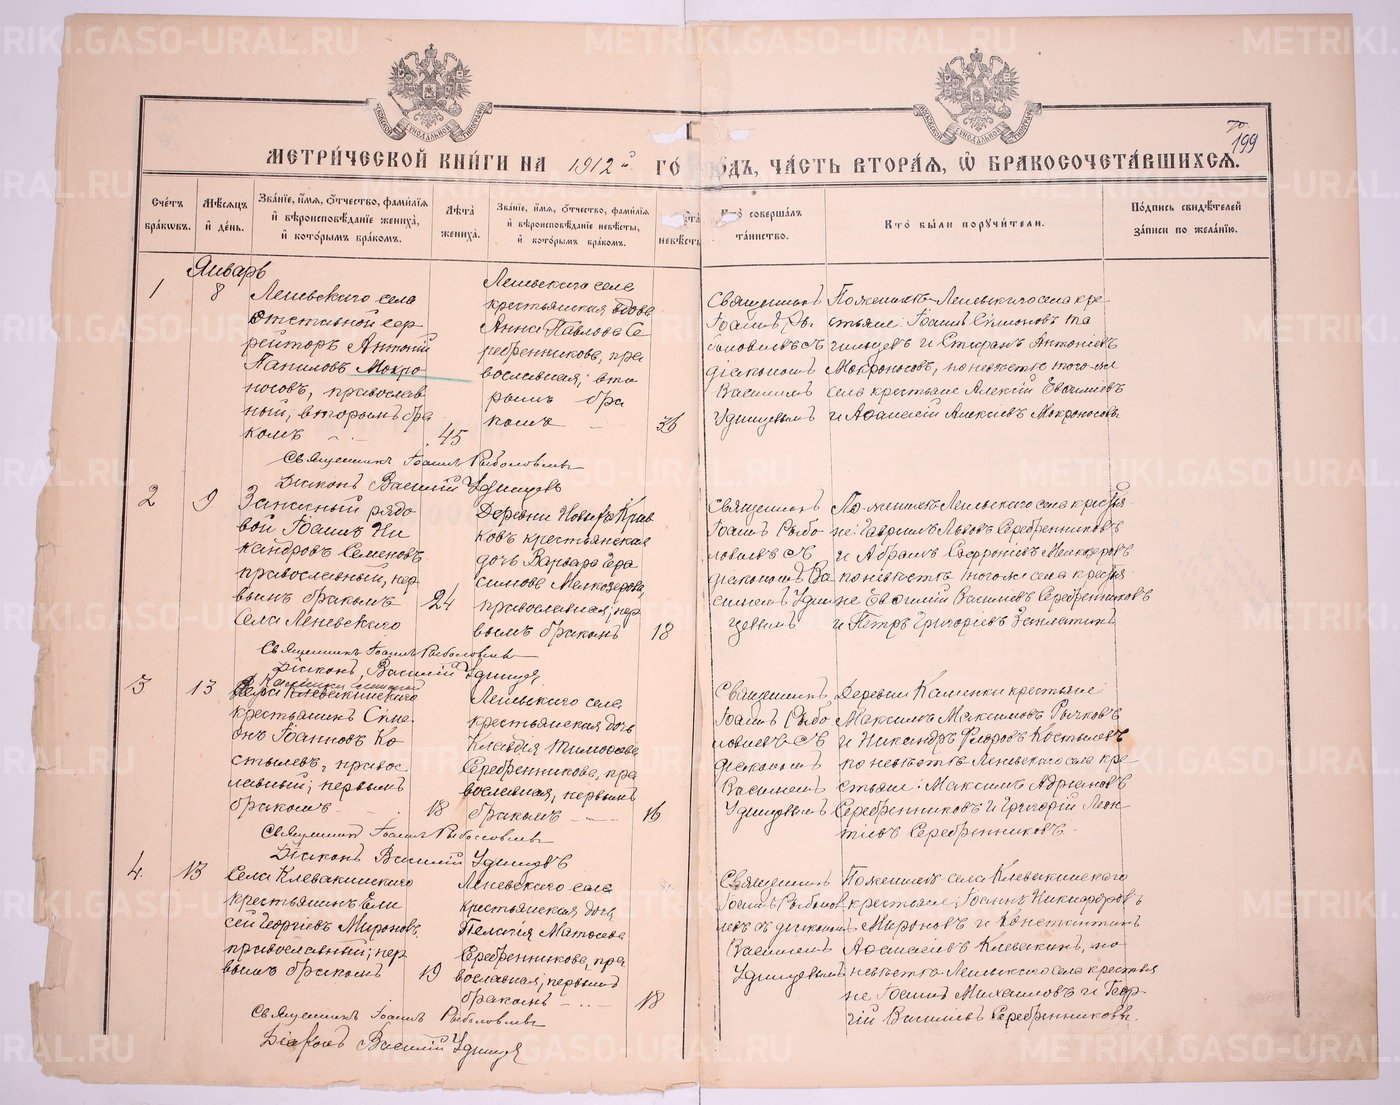 МЕТРИЧЕСКОЙ КНИГИ НА 1912й ГОДЪ, ЧАСТЬ ВТОРАЯ, Ѽ БРАКОСОЧЕТАВШИХСЯ.
199
Счетъ браковъ.
Мѣсяцъ и день.
Званіе, имя, отчество, фамилія и вѣроисповѣданіе жениха, и которымъ бракомъ.
Лѣта жениха.
Званіе, имя, отчество, фамилія и вѣроисповѣданіе невѣсты, и которымъ бракомъ.
невѣсты
Кто совершалъ таинство.
Кто были поручители.
Подпись свидѣтелей записи по желанію.
Январь
1
8
Леневскаго села
отставной ефр
рейторъ Антоній
Паниловъ Мокро
носовъ, православ
ный, вторымъ бра
комъ
45
Леневскаго села
крестьянская вдова
Анна Павлова Се
ребренникова, пра
вославная; вто
рымъ бра
комъ
36
Священникъ
Іоаннъ Ры
боловлевъ съ
діакономъ
Василіемъ
Удинцевымъ
По женихѣ Леневскаго села кре-
стьяне: Іоаннъ Симоновъ Та
и Стефанъ Антоніевъ
Мокроносовъ, по невѣстѣ того-же
села крестьяне Алексій Евѳиміевъ
и Аѳанасій Алексіевъ Мокроносовы
Священникъ Іоаннъ Рыболовлевъ
Діаконъ Василій Удинцевъ
2
9
Запасный рядо
вой Іоаннъ Ни
кандровъ Семеновъ
православный, пер
вымъ бракомъ
села Леневскаго
24
Деревни Новыхъ Крив
ковъ крестьянская
дочь Варвара Гера
симова Мелкозерова,
православная; пер
вымъ бракомъ
18
Священникъ
Іоаннъ Рыбо
ловлевъ съ
діакономъ Ва
силіемъ Удин
цевымъ
По женихѣ Леневскаго села крестья
не: Гавріилъ Львовъ Серебренниковъ
и Абрамъ Софроніевъ Мелкозеровъ
по невѣстѣ того-же села крестья
не Евѳимій Василіевъ Серебренниковъ
и Петръ Григоріевъ Заплатинъ
Священникъ Іоаннъ Рыболовлевъ
Діаконъ Василій Удинцевъ
3
13
Села Клевакинскаго
крестьянинъ Симе
онъ Іоанновъ Ко
стылевъ, правос
лавный; первымъ
бракомъ
18
Леневскаго села
крестьянская дочь
Клавдія Тимоѳеева
Серебренникова, пра
вославная, первымъ
бракомъ
16
Священникъ
Іоаннъ Рыбо
ловлевъ съ
діакономъ
Василіемъ
Удинцевымъ
Деревни Каменки крестьяне:
Максимъ Максимовъ Рычковъ
и Никандръ Флоровъ Костылевъ
по невѣстѣ Леневскаго села кре-
стьяне: Максимъ Адріановъ
Серебренниковъ и Григорій Леон-
тіевъ Серебренниковъ.
Священникъ Іоаннъ Рыболовлевъ
Діаконъ Василій Удинцевъ
4
13
Села Клевакинскаго
крестьянинъ Ели
сей Георгіевъ Мироновъ,
православный; пер
вымъ бракомъ
19
Леневскаго села
крестьянская дочь
Пелагія Матѳеева
Серебренникова, пра
вославная; первымъ
бракомъ
18
Священникъ
Іоаннъ Рыболов
левъ съ діакономъ
Василіемъ
Удинцевымъ
По женихѣ села Клевакинскаго
крестьяне: Іоаннъ Никифоровъ
Мироновъ и Константинъ
Аѳанасіевъ Клевакинъ, по
невѣстѣ Леневскаго села крестья
не Іоаннъ Михаиловъ и Геор-
гій Василіевъ Серебренниковы.
Священникъ Іоаннъ Рыболовлевъ
Діаконъ Василій Удинцевъ
METRIKI.GASO-URAL.RU